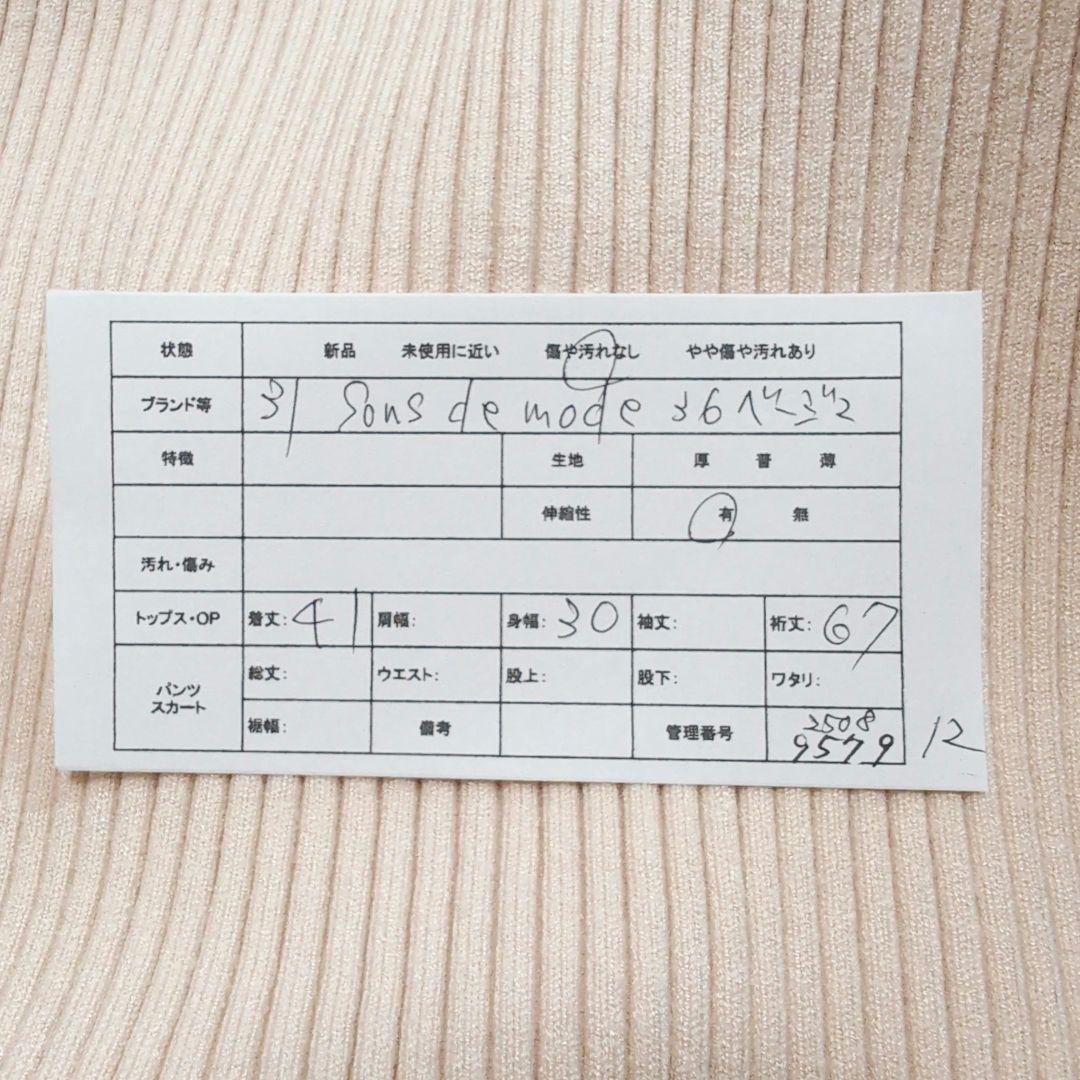 状態 新品 未使用に近い 傷や汚れなし やや傷や汚れあり
ブランド等 31 Sons de mode 36
特徴 生地 厚 普 薄
伸縮性 有 無
汚れ・傷み
トップス・OP 着丈: 41 肩幅: 身幅: 30 袖丈: 裄丈: 67
パンツ 総丈: ウエスト: 股上: 股下: ワタリ:
スカート
裾幅: 備考 管理番号 2508
9579 12